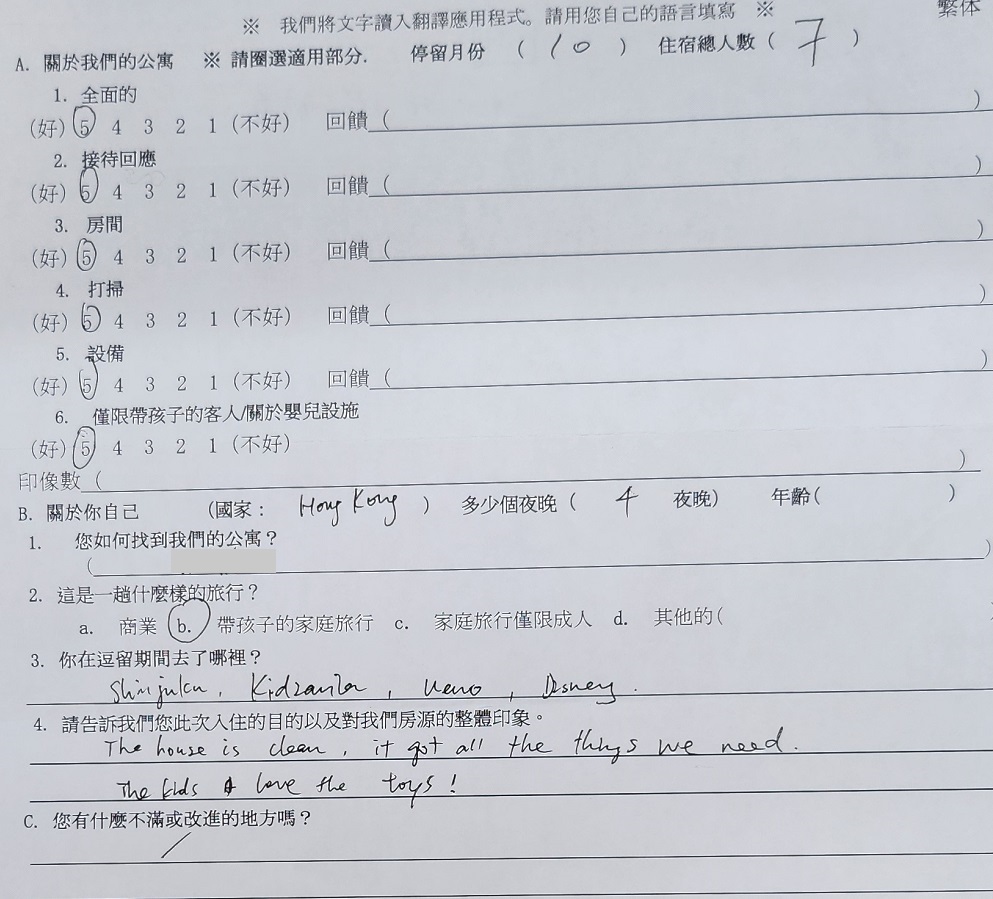 繁体
※ 我們將文字讀入翻譯應用程式。請用您自己的語言填寫 ※
A. 關於我們的公寓 ※ 請圈選適用部分. 停留月份 ( 10 ) 住宿總人數 ( 7 )
1. 全面的
(好) 5 4 3 2 1 (不好) 回饋 ( )
2. 接待回應
(好) 5 4 3 2 1 (不好) 回饋 ( )
3. 房間
(好) 5 4 3 2 1 (不好) 回饋 ( )
4. 打掃
(好) 5 4 3 2 1 (不好) 回饋 ( )
5. 設備
(好) 5 4 3 2 1 (不好) 回饋 ( )
6. 僅限帶孩子的客人/關於嬰兒設施
(好) 5 4 3 2 1 (不好)
印像數 ( )
B. 關於你自己 (國家: Hong Kong ) 多少個夜晚 ( 4 夜晚) 年齡( )
1. 您如何找到我們的公寓?
( )
2. 這是一趟什麼樣的旅行?
a. 商業 b. 帶孩子的家庭旅行 c. 家庭旅行僅限成人 d. 其他的(
3. 你在逗留期間去了哪裡?
Shinjuku, Kidzania, Ueno, Disney.
4. 請告訴我們您此次入住的目的以及對我們房源的整體印象。
The house is clean, it got all the things we need.
The kids love the toys!
C. 您有什麼不滿或改進的地方嗎?
/